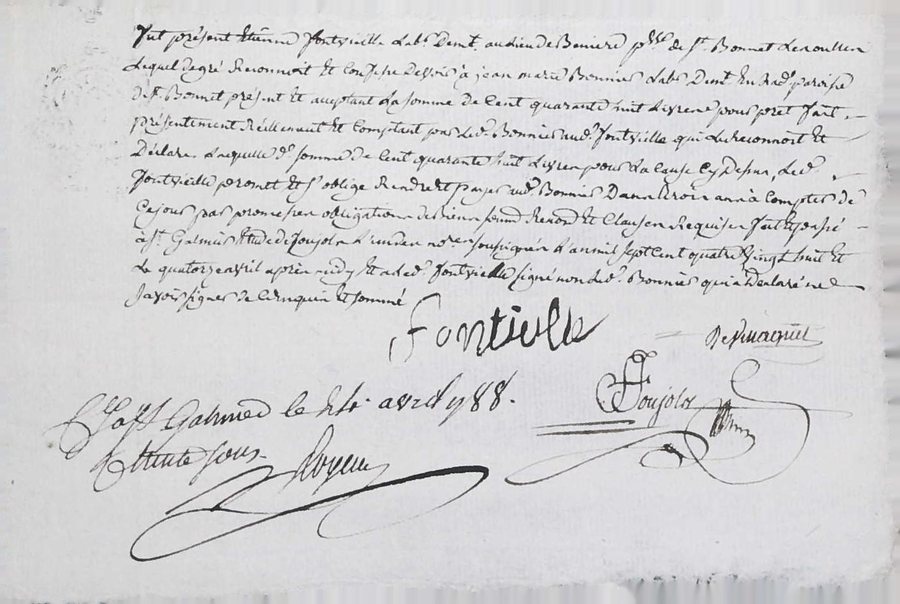 fut présent Etienne fontvieille Labr. Demt. au lieu de Beniere psse. de st. Bonnet Lescoulles
Lequel de gré Reconnoit Et Confesse Devoir à jean marie Bonnier Labr. Demt. En lad. paroise
de st. Bonnet présent Et acceptant La somme de Cent quarante huit Livres pour pret fait
présentement Réellement Et Comptant par Led. Bonnier aud. fontvieille qui Le Reconnoit Et
Déclare Laquelle de. somme de Cent quarante huit Livres pour La Cause Cy Dessus, Led.
fontvieille promet Et s'oblige Rendre Et payer aud. Bonnier Dans trois ans à Compter de
Ce jour par promesses obligation de Biens Soum. Renon. Et Clauses Requises fait Et passé
à st. Galmier Etude de Poujolz L'un des nores. soussignés L'an mil sept Cent quatre Vingt huit Et
Le quatorze avril après midy Et a Led. fontvieille signé non Led. Bonnier qui a Déclaré ne
savoir signer de Ce Enquis Et sommé
fontvielle
Poujolz
à st Galmier le 24e. avril 1788.
trente sous